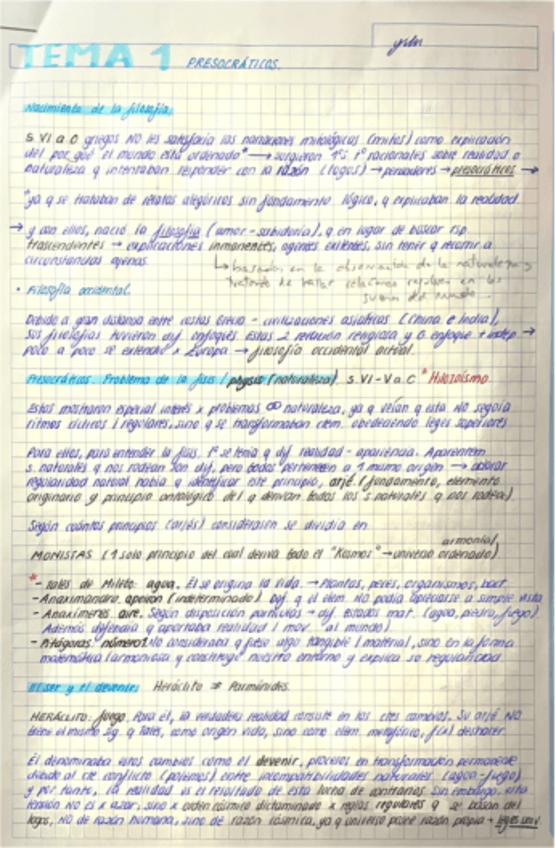 TEMA 1 PRESOCRÁTICOS.
Nacimiento de la filosofía.
S. VI a.C griegos NO les satisfacía las narraciones mitológicas (mitos) como explicación
del por qué el mundo está ordenado* → surgieron 1ªs racionales sobre realidad o
naturaleza q intentaban responder con la razón (logos) → pensadores → presocráticos →
*ya q se trataban de relatos alegóricos sin fundamento lógico, q explicaban la realidad
→ y con ellos, nació la filosofía (amor-sabiduría), q en lugar de buscar rsp.
trascendentes → explicaciones inmanentes, agentes existentes, sin tener q recurrir a
circunstancias ajenas.
↳ basadas en la observación de la naturaleza y
tratando de hallar relaciones en los
del mundo
• Filosofía occidental.
Debido a gran distancia entre costas Grecia - civilizaciones asiáticas (China e India),
sus filosofías tuvieron dif enfoques. Estas 2 relación religiosa y G enfoque + indep →
poco a poco se extendió x Europa → filosofía occidental actual.
Presocráticos. Problema de la fisis / physis (naturaleza) S. VI-V a.C * Hilozoísmo.
Estos mostraron especial interés x problemas naturaleza, ya q veían q esta NO seguía
ritmos cíclicos / regulares, sino q se transformaban obedeciendo leyes superiores
Para ellos, para entender la fisis, 1º se tenía q dif realidad - apariencia. Aparentem.
s. naturales q nos rodean son dif, pero todos pertenecen a 1 mismo origen →
regularidad natural había q identificar este principio, arjé (fundamento, elemento
originario y principio ontológico del q derivan todos los s naturales q nos rodea)
Según cuántos principios (arjés) considerasen se dividía en
armonía/
MONISTAS (1 solo principio del cual deriva todo el "Kosmos" → universo ordenado)
*- Tales de Mileto: agua. Él se origina la vida. → Plantas, peces, organismos, bact.
- Anaximandro. apeiron (indeterminado). Def. q el elem. No podía apreciarse a simple vista
- Anaxímenes aire. Según disposición partículas → dif. estados mat. (agua, piedra, fuego)
Además defendía q aportaba realidad / mov. al mundo)
- Pitágoras números. No consideraba q fuese algo tangible / material, sino en la forma
matemática (armoniosa q constituye nuestro entorno y explica su regularidad
El ser y el devenir. Heráclito ≠ Parménides.
HERÁCLITO: fuego. Para él, la verdadera realidad consiste en los ctes cambios. Su arjé NO
tiene el mismo sig. q Tales, como origen vida, sino como elem. metafórico, f(x) deshacer.
Él denominaba estos cambios como el devenir, procesos en transformación permanente
debido al cte conflicto (polemos) entre incompatibilidades naturales. (agua-fuego)
y por tanto, la realidad es el resultado de esta lucha de contrarios. Sin embargo, esta
tensión NO es x azar, sino x orden cósmico dictaminado x reglas regulares q se basan del
logos, NO de razón humana, sino de razón cósmica, ya q universo posee razón propia + leyes univ.